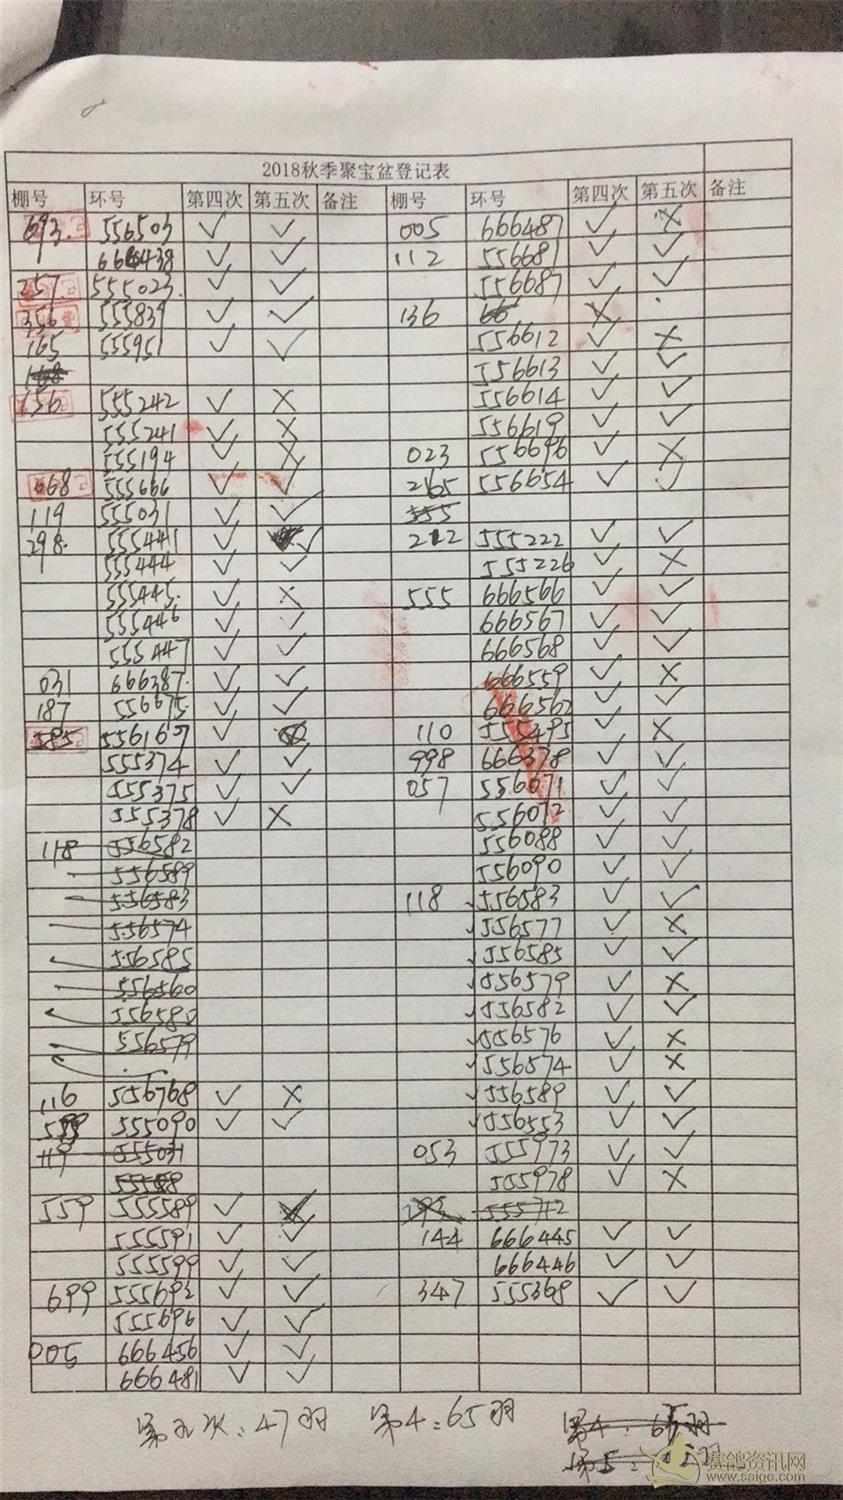 2018秋季聚宝盆登记表
棚号 环号 第四次 第五次 备注 棚号 环号 第四次 第五次 备注
693. 556503 ✓ ✓ 005 666487 ✓ ✗
666438 ✓ ✓ 112 556681 ✓ ✓
257 555023 ✓ ✓ 556687 ✓ ✓
356 555839 ✓ ✓ 136 66 ✗
165 555951 ✓ ✓ 556612 ✓ ✗
168 556613 ✓ ✓
156 555242 ✓ ✗ 556614 ✓ ✓
555241 ✓ ✗ 556619 ✓ ✓
555194 ✓ ✗ 023 556696 ✓ ✗
668 555666 ✓ ✓ 265 556654 ✓ ✓
119 555031 ✓ ✓ 555
298. 555441 ✓ ✓ 212 555222 ✓ ✓
555444 ✓ ✓ 555226 ✓ ✗
555445. ✓ ✗ 555 666566 ✓ ✓
555446 ✓ ✓ 666567 ✓ ✓
555447 ✓ ✓ 666568 ✓ ✓
031 666387. ✓ ✓ 666559 ✓ ✗
187 556675 ✓ ✓ 666562 ✓ ✓
585 ✓ 110 555495 ✓ ✗
555374 ✓ ✓ 998 666378 ✓ ✓
555375 ✓ ✓ 057 556071 ✓ ✓
555378 ✓ ✗ 556072 ✓ ✓
118 556582 556088 ✓ ✓
556589 556090 ✓ ✓
556583 118 556583 ✓ ✓
556574 556577 ✓ ✗
556585 556585 ✓ ✓
556560 556579 ✓ ✗
556580 556582 ✓ ✓
556579 556576 ✓ ✗
556574 ✓ ✗
116 556768 ✓ ✗ 556589 ✓ ✓
555090 ✓ ✓ 556553 ✓ ✓
119 555031 053 555973 ✓ ✓
555978 ✓ ✗
559 555589 ✓
555591 ✓ ✓ 144 666445 ✓ ✓
555599 ✓ ✓ 666446 ✓ ✓
699 555692 ✓ ✓ 347 555368 ✓ ✓
555696 ✓ ✓
005 666456 ✓ ✓
666481 ✓ ✓
第五次:47羽 第4:65羽 第4:65羽
第5: 羽
赛鸽资讯网
www.saige.com